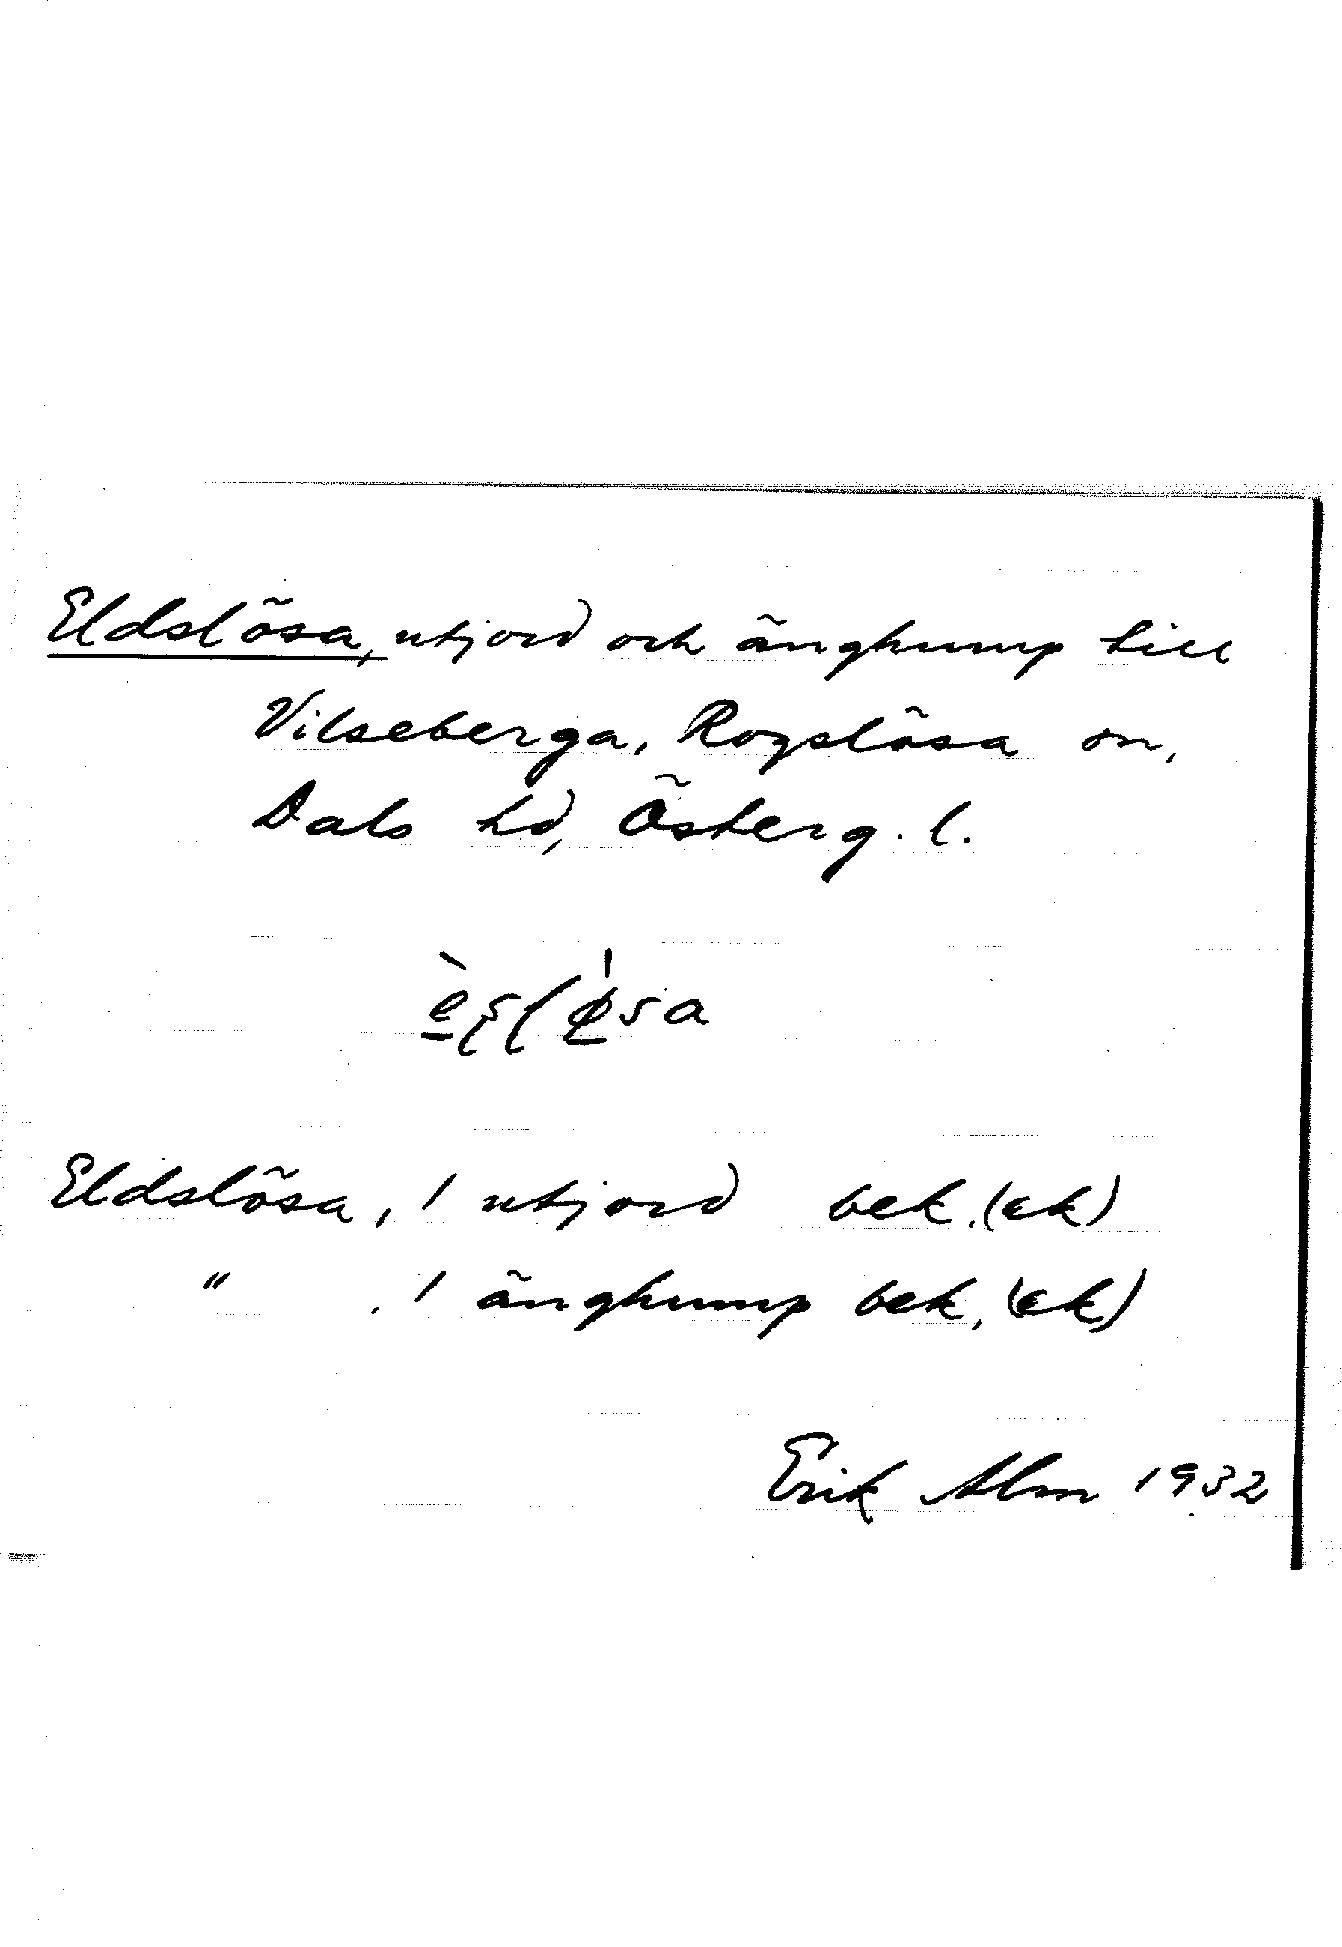 Eldslösa, utjord och änghump till
Vilseberga, Rogslösa sn,
Dals hd, Österg. l.
Eldslösa, 1 utjord bek. (ek)
" , 1 änghump bek, (ek)
Erik Alm 1932